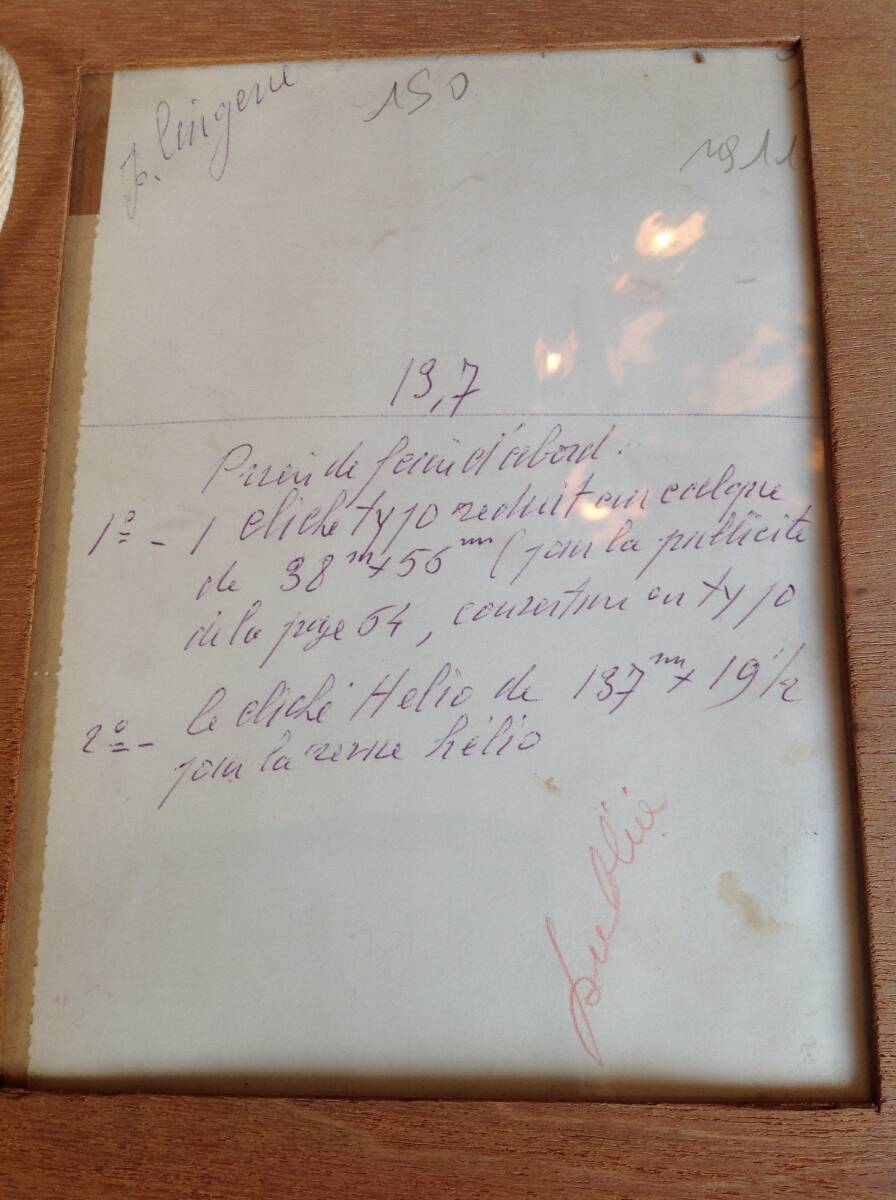 p. lingerie
150
1911
13,7
Prière de faire d'abord :
1º - 1 cliché typo réduit au calque
de 38 mm x 56 mm (pour la publicité
de la page 64, couverture en typo
2º - le cliché Hélio de 137 mm x 19 1/2
pour la revue hélio
publié